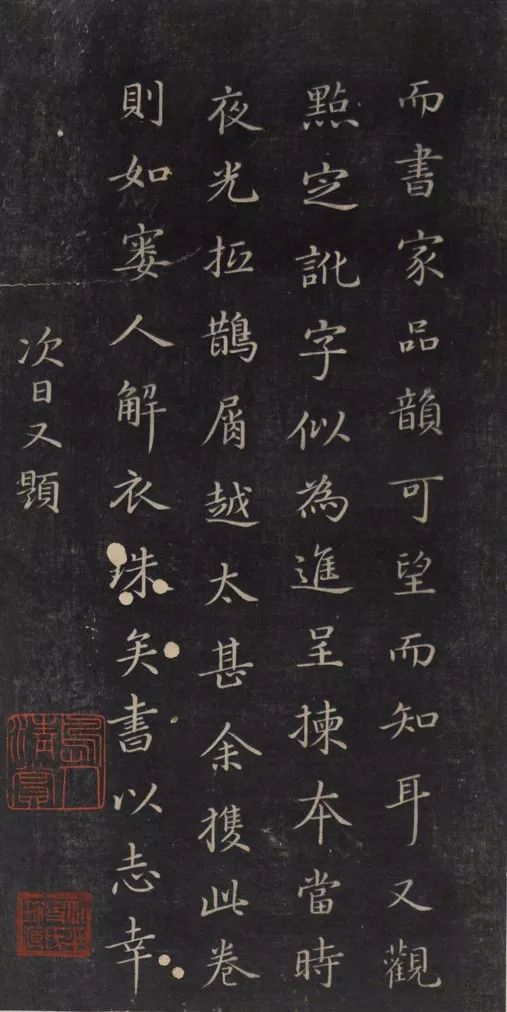 而書家品韻可望而知耳又觀
點定訛字似為進呈揀本當時
夜光抵鵲屑越太甚余獲此卷
則如窶人解衣珠矣書以志幸
次日又題